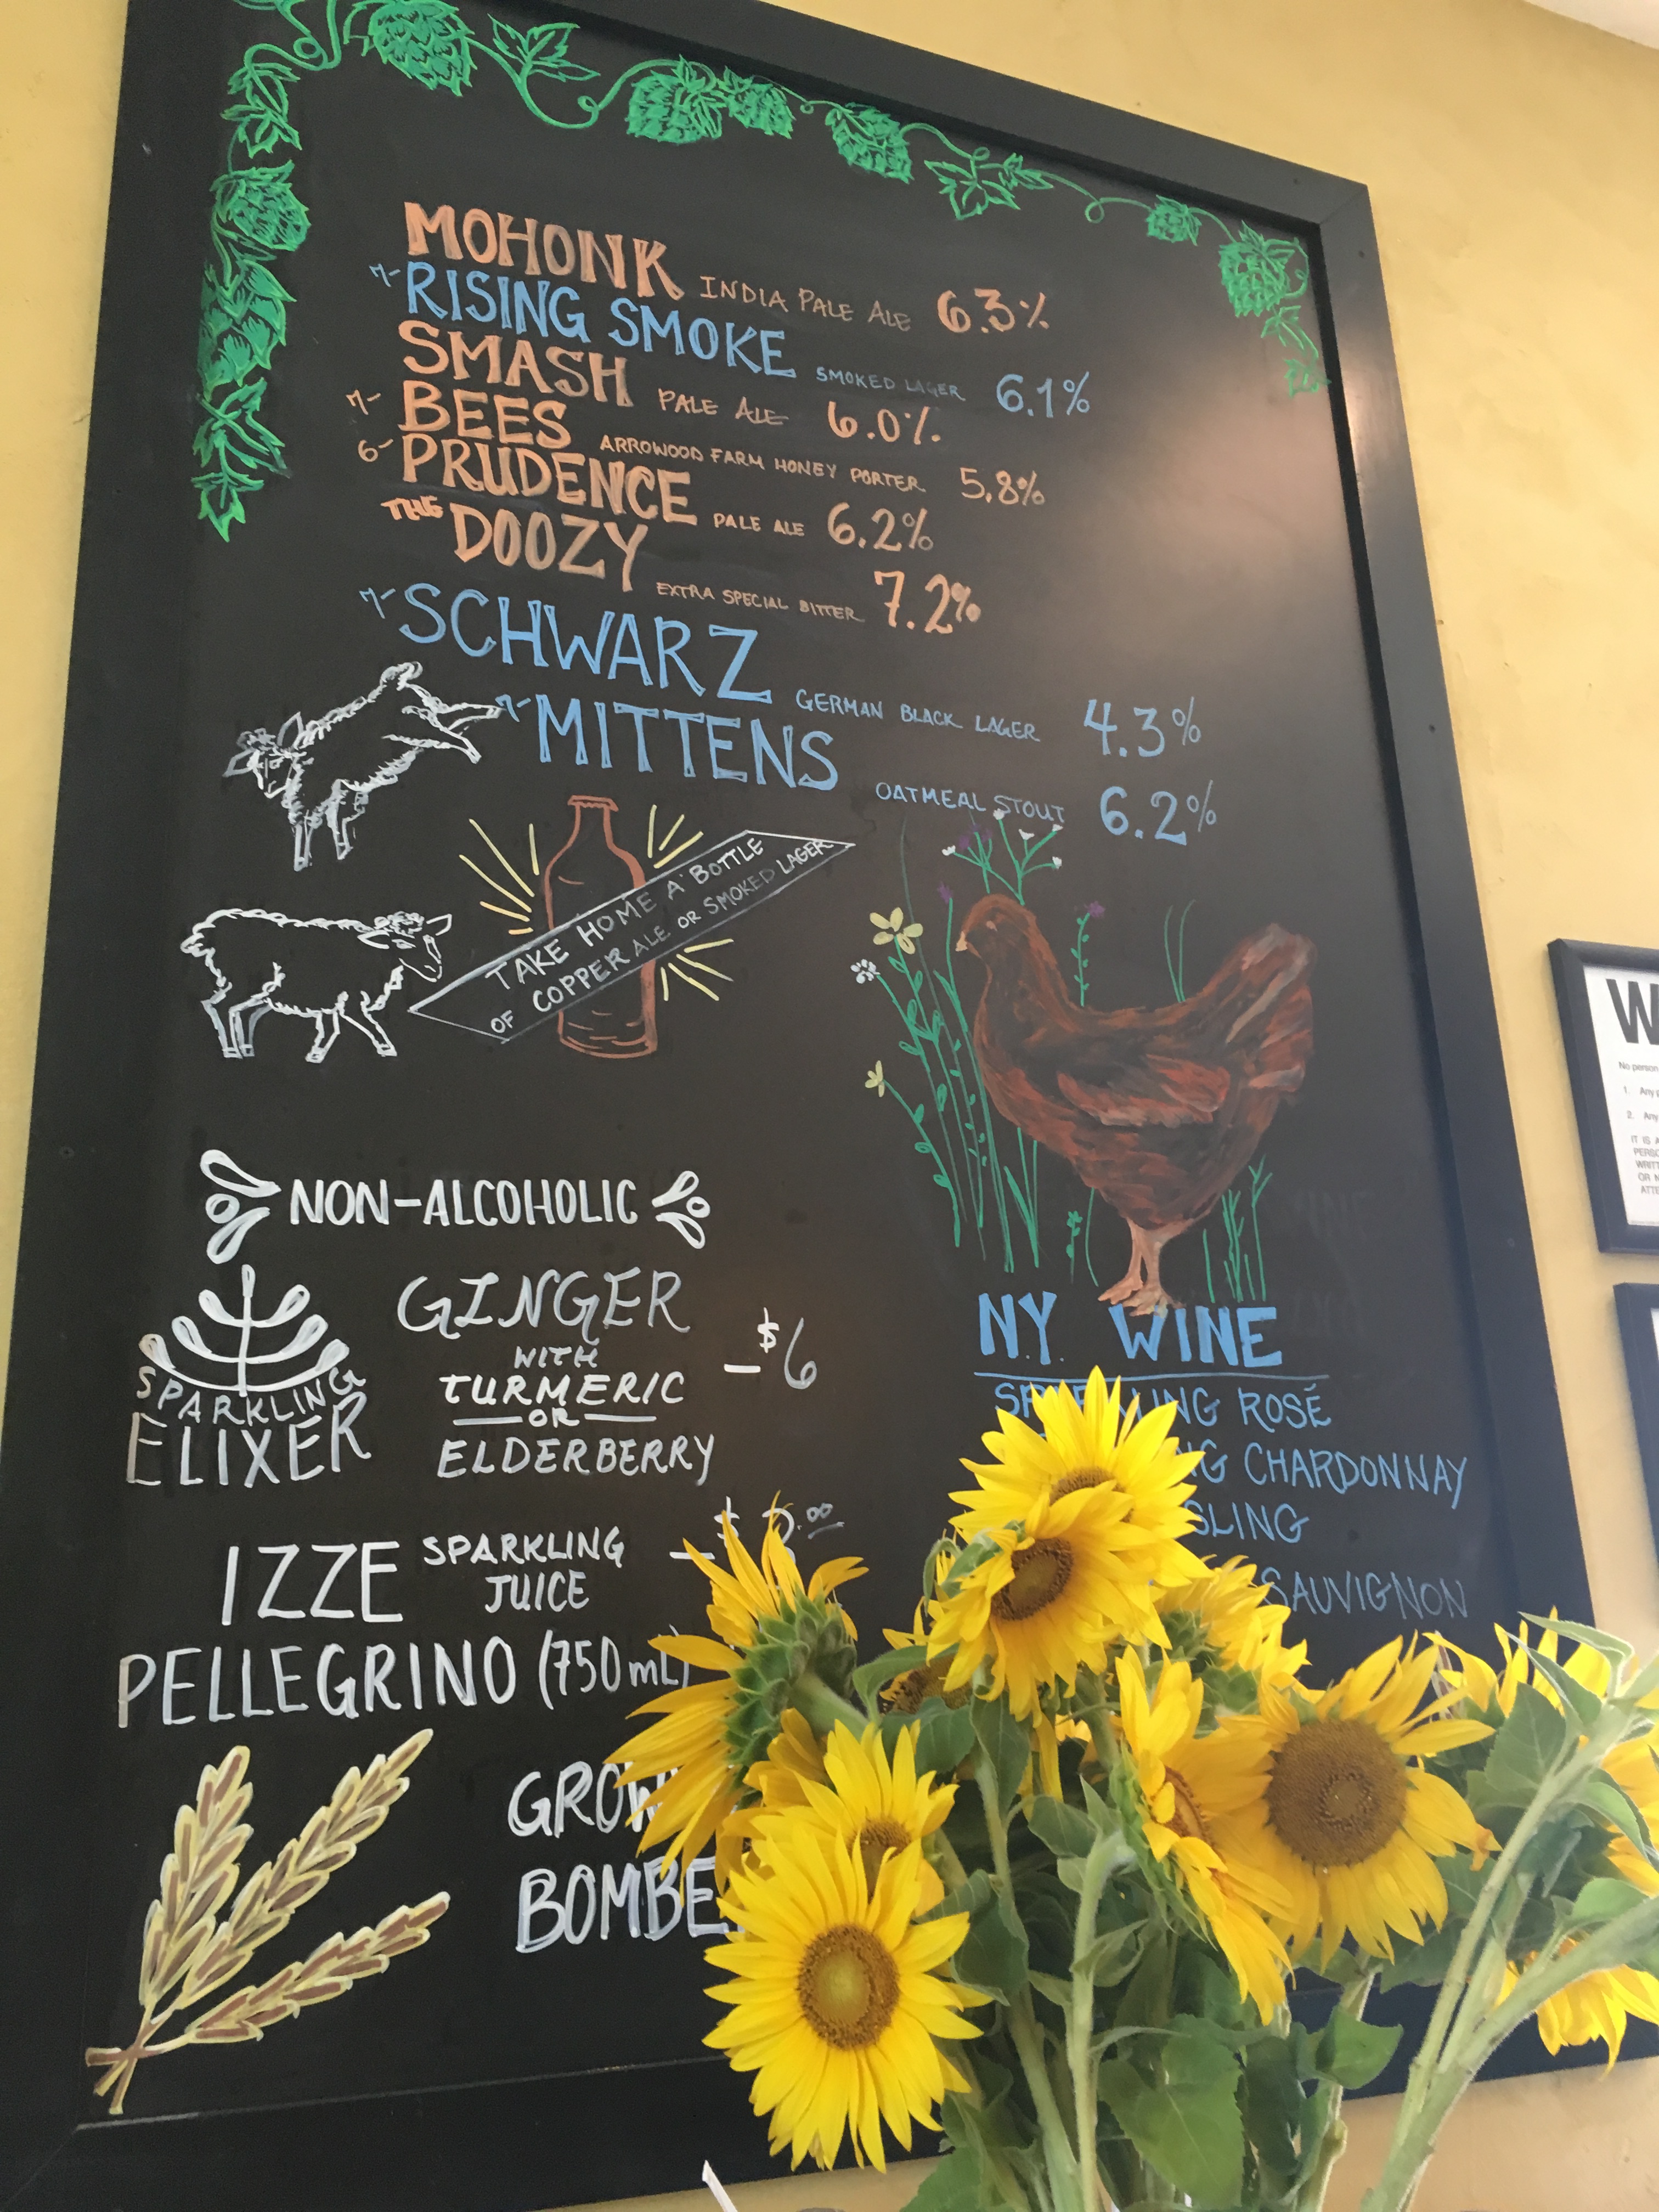 MOHONK INDIA PALE ALE 6.3%
7- RISING SMOKE SMOKED LAGER 6.1%
SMASH PALE ALE 6.0%
7- BEES ARROWOOD FARM HONEY PORTER 5.8%
6- PRUDENCE PALE ALE 6.2%
THE DOOZY EXTRA SPECIAL BITTER 7.2%
7- SCHWARZ GERMAN BLACK LAGER 4.3%
7- MITTENS OATMEAL STOUT 6.2%
TAKE HOME A BOTTLE
OF COPPER ALE OR SMOKED LAGER
NON-ALCOHOLIC
SPARKLING
ELIXER
GINGER
WITH
TURMERIC
—OR—
ELDERBERRY
-$6
IZZE SPARKLING
JUICE
PELLEGRINO (750mL)
GROW
BOMBE
N.Y. WINE
ROSÉ
CHARDONNAY
SLING
SAUVIGNON
W
No person
1. Any
2. Any
IT IS A
PERSO
WRITT
OR N
ATTE